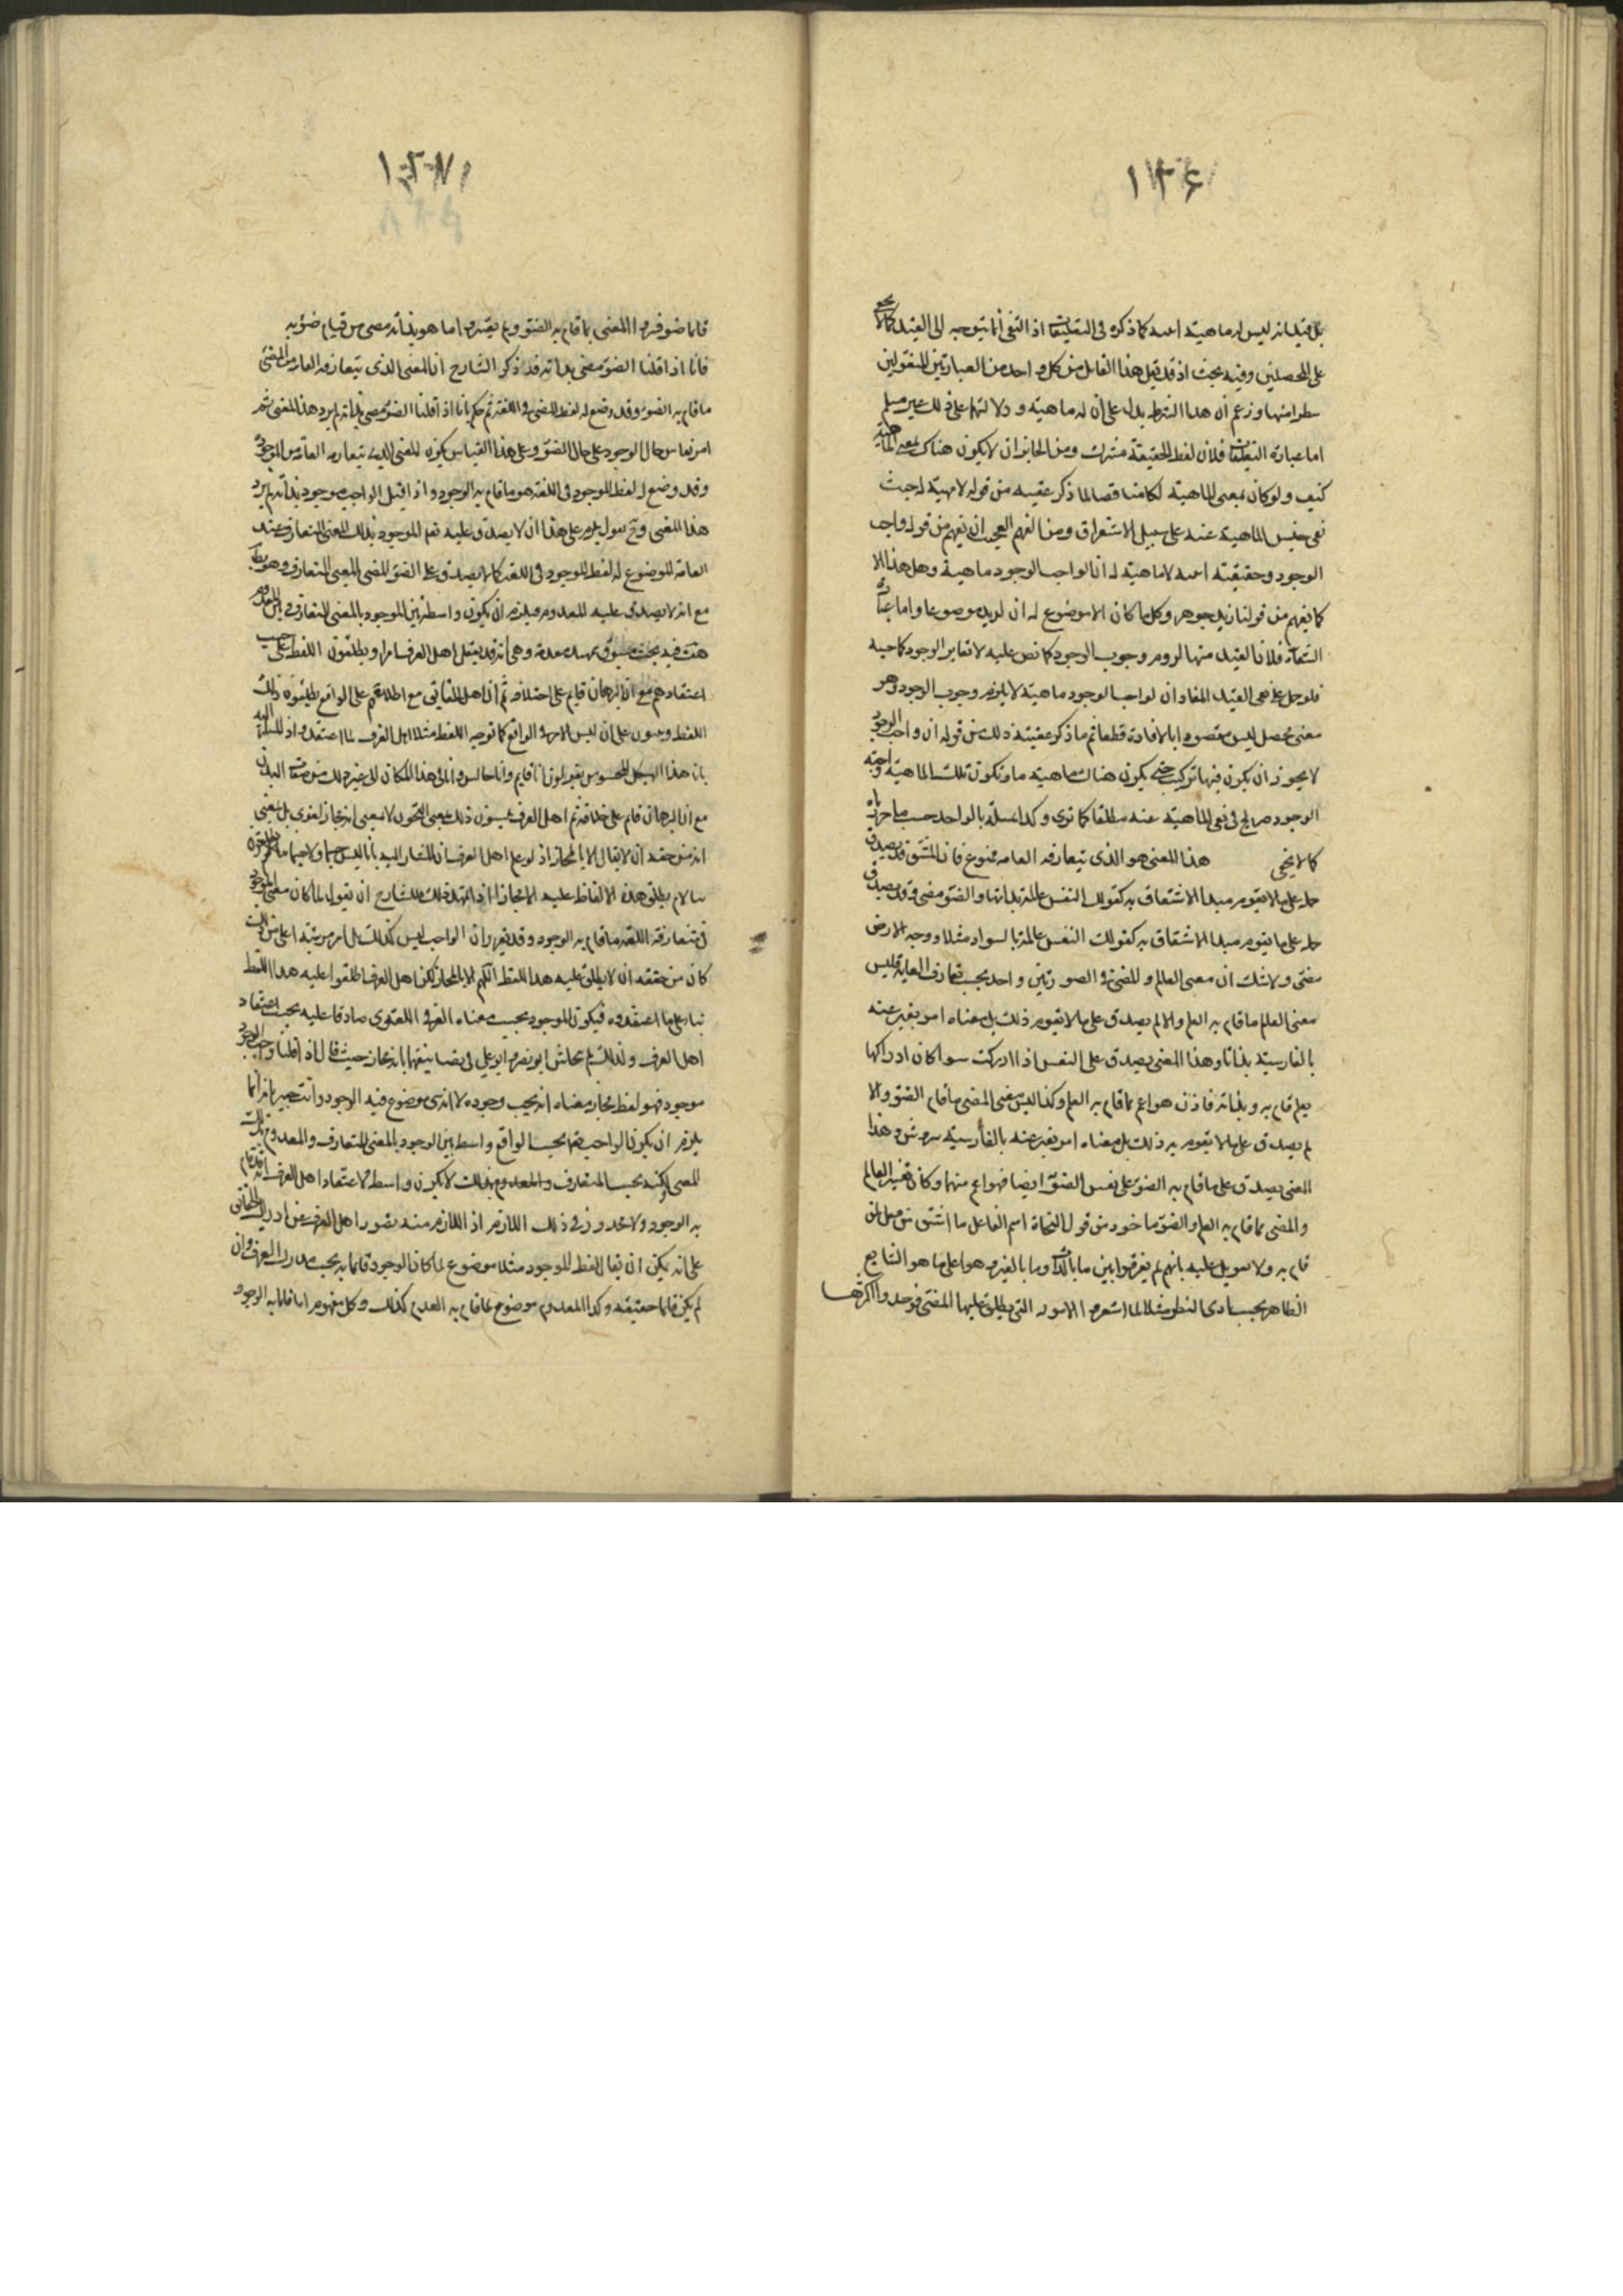 ١٣٤
بل قيد انه ليس له ماهية كما ذكره في التعليقات اذ النفي انما يتوجه الى القيد كما لا يخفى
على المحصلين وفيه بحث اذ قد قيل هذا القائل من كل واحد من العبارتين المنقولين
سطرا منها وزعم ان هذا الشرط يدل على ان له ماهية ودلالتهما على ذلك غير مسلم
اما عبارة التعليقات فلان لفظ الحقيقة مشترك ومن الجايز ان لا يكون هناك بمعنى الماهية
كيف ولو كان بمعنى الماهية لكان مناقضا لما ذكر عقيبه من قوله لا مهية له حيث
نفى جنس الماهية عنه على سبيل الاستغراق ومن الفهم العجيب ان يفهم من قوله واجب
الوجود وحقيقته لا ماهية له ان الواجب الوجود ماهية وهل هذا الا
كما يفهم من قولنا زيد جوهر وكل ما كان لا موضوع له ان لزيد موضوعا واما عبارة
الشفاء فلان القيد منها لزوم وجوب الوجود كما نص عليه لا تغاير الوجود كما حسبه
فلو حمل على نفي القيد المفاد ان لواجب الوجود ماهية لا يلزم وجوب الوجود وهو
معنى محصل ليس مقصودا بالافادة قطعا ثم ما ذكر عقيبه ذلك من قوله ان واجب الوجود
لا يجوز ان يكون فيها تركيب حتى يكون هناك ماهية ما وتكون تلك الماهية واجبة
الوجود صريح في نفي الماهية عنه مطلقا كما ترى وكذا بالواحد حسب ما حررناه
كما لا يخفى هذا المعنى هو الذي يتعارفه العامة ممنوع فان المشتق قد يصدق
حمله على ما لا يقوم مبدا الاشتقاق به كقولك النفس عالمة بذاتها والضوء مضيء وقد يصدق
حمله على ما يقوم مبدا الاشتقاق به كقولك النفس عالمة بالسواد مثلا ووجه الارض
مضيء ولا شك ان معنى العالم والمضيء في الصورتين واحد بحسب تعارف العامة فليس
معنى العالم ما قام به العلم والا لم يصدق على ما لا يقوم ذلك بل معناه امر يعبر عنه
بالفارسية بدانا وهذا المعنى يصدق على النفس اذا ادركت سواء كان ادراكها
بعلم قام به وبذاته فاذن هو اعم مما قام به العلم وكذا ليس معنى المضيء ما قام الضوء والا
لم يصدق على ما لا يقوم به ذلك بل معناه امر يعبر عنه بالفارسية وهذا
المعنى يصدق على ما قام به الضوء على نفس الضوء ايضا فهو اعم منهما وكان تفسير العالم
والمضيء بما قام به العلم والضوء ماخوذ من قول النحاة اسم الفاعل ما اشتق من فعل لمن
قام به ولا تعويل عليه بانهم لم يفرقوا بين ما بالذات وما بالغير هو على ما هو الشايع
الظاهر بحسب بادي النظر مثلا لما استقروا الامور التي يطلق عليها المضيء فوجدوا اكثرها
١٣٧
قائما ضوءه المعنى بما قام به الضوء ولم يعتبروا ما هو بذاته مضيء من قيام ضوء به
فانا اذا قلنا الضوء مضيء بذاته فقد ذكر الشارح ان المعنى الذي يتعارفه العامة من المضيء
ما قام به الضوء وقد وضع له لفظ المضيء في اللغة ثم حكم بانا اذا قلنا الضوء مضيء بذاته لم يرد هذا المعنى ثم
امر بقياس حال الوجود على حال الضوء وعلى هذا القياس يكون المعنى الذي يتعارفه العامة من الموجود
وقد وضع له لفظ الموجود في اللغة هو ما قام به الوجود واذا قيل الواجب موجود بذاته لم يرد
هذا المعنى وح نقول يلزم على هذا ان لا يصدق عليه نعم الموجود بذلك المعنى المتعارف عند
العامة الموضوع له لفظ الموجود في اللغة كما لا يصدق على الضوء المضيء المعنى المتعارف وهو
مع انه لا يصدق عليه المعدوم فيلزم ان يكون واسطة بين الموجود بالمعنى المتعارف وبين المعدوم
هف فيه بحث مسبوق بتمهيد مقدمة وهي انه قد يعتقد اهل العرف امرا ويطلقون اللفظ على حسب
اعتقادهم مع ان البرهان قايم على اختلافه ثم ان اهل الحقايق مع اطلاعهم على الواقع يطلقون ذلك
اللفظ على ان ليس الامر في الواقع كما توجه اللفظ مثلا اهل العرف لما اعتقدوا
بان هذا الهيكل المحسوس يقولون انا قايم وانا جالس وانا في هذا المكان الى غير ذلك من صفات البدن
مع ان البرهان قام على خلافه ثم اهل العرف ذلك بمعنى التجوز لا بمعنى انه مجاز لغوي بل بمعنى
انه من حقه ان لا يقال الا بالمجاز اذ لو علم اهل العرف ان المشار اليه بانا ليس جسما ولا جسمانيا
يطلق هذه الالفاظ عليه الا مجازا اذا تمهد ذلك فللشارح ان يقول لما كان معنى الموجود
في متعارفة اللغة ما قام به الوجود وقد تقرر ان الواجب ليس كذلك بل امر مرتبته اعلى من ذلك
كان من حقه ان لا يطلق عليه هذا اللفظ الا بالمجاز لكن اهل العرف اطلقوا عليه هذا اللفظ
بناء على ما اعتقدوه فيكون الموجود بحسب معناه العرفي اللغوي صادقا عليه بحسب اعتقاد
اهل العرف ولذلك لم يتحاش ابو نصر وابو علي في تصانيفهما بانه مجاز حيث قال اذا قلنا واجب الوجود
موجود فهو لفظ مجاز معناه انه يجب وجوده لا انه شيء موضوع فيه الوجود وانت خبير بانه انما
يلزم ان يكون الواجب بحسب الواقع واسطة بين الوجود بالمعنى المتعارف والمعدوم بذلك
المعنى لكنه بحسب المتعارف والمعدوم بذلك لا يكون واسطة لاعتقاد اهل العرف انه قام
به الوجود ولا محذور في ذلك اللازم اذ اللازم منه تصور اهل العرف عن ادراك الحقايق
على انه يمكن ان يقال لفظ الموجود مثلا موضوع لما كان الوجود قائما به بحسب مدارك العرف وان
لم يكن قائما حقيقة وكذا المعدوم موضوع لما قام به العدم كذلك وكل مفهوم اما قام به الوجود